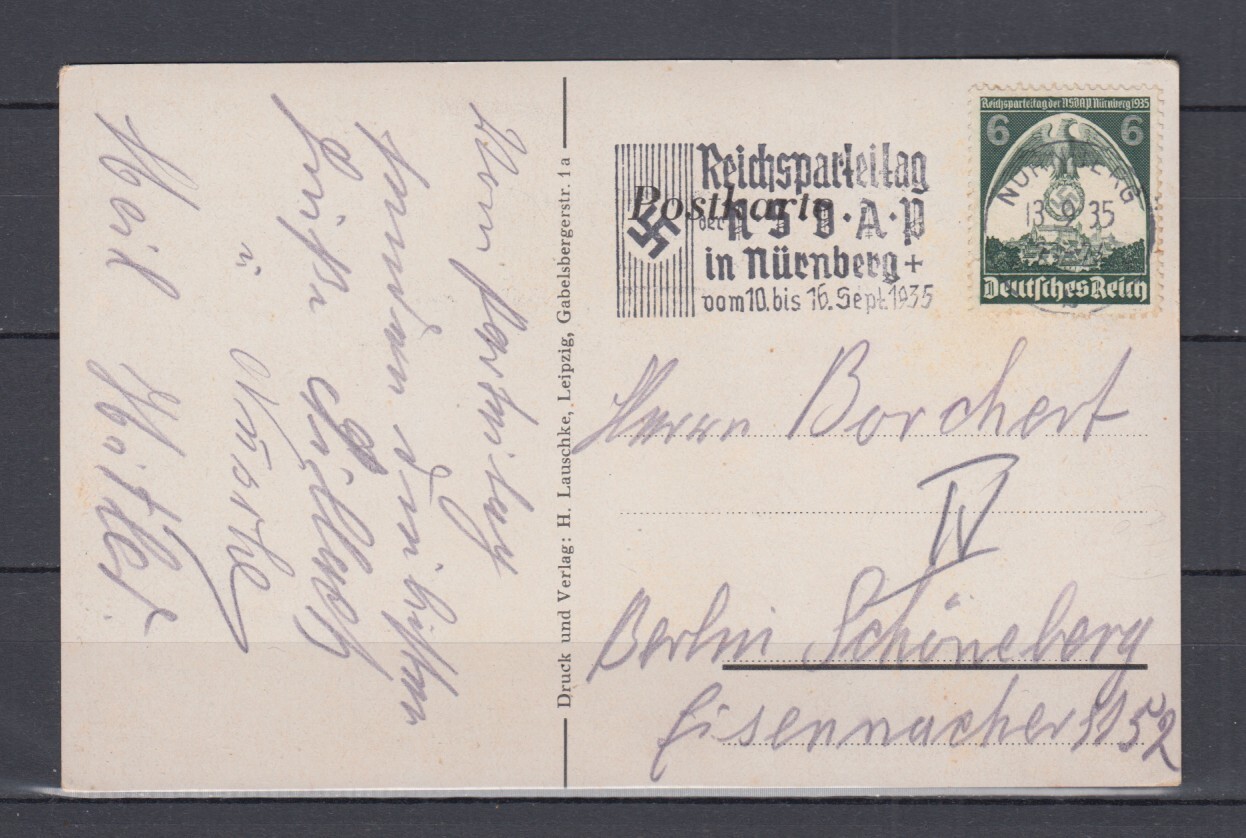 Vom Parteitag
senden den besten
Grüße
u
Heil Hitler
Druck und Verlag: H. Lauschke, Leipzig, Gabelsbergerstr. 1a
Postkarte
Reichsparteitag
der N·S·D·A·P
in Nürnberg +
vom 10. bis 16. Sept. 1935
Reichsparteitag der NSDAP Nürnberg 1935
6 6
NÜRNBERG
13.9.35
Deutsches Reich
Herrn Borchert
IV
Berlin Schöneberg
Eisennacherst 52